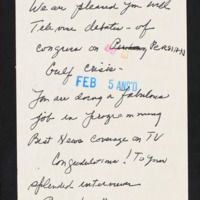 We are pleased you will
Televise debates - of
congress on Persian
Gulf crisis -
FEB 5 ANS'D
You are doing a fabulous
job in programming
Best News coverage on TV
Congratulations! To your
splended interviewer